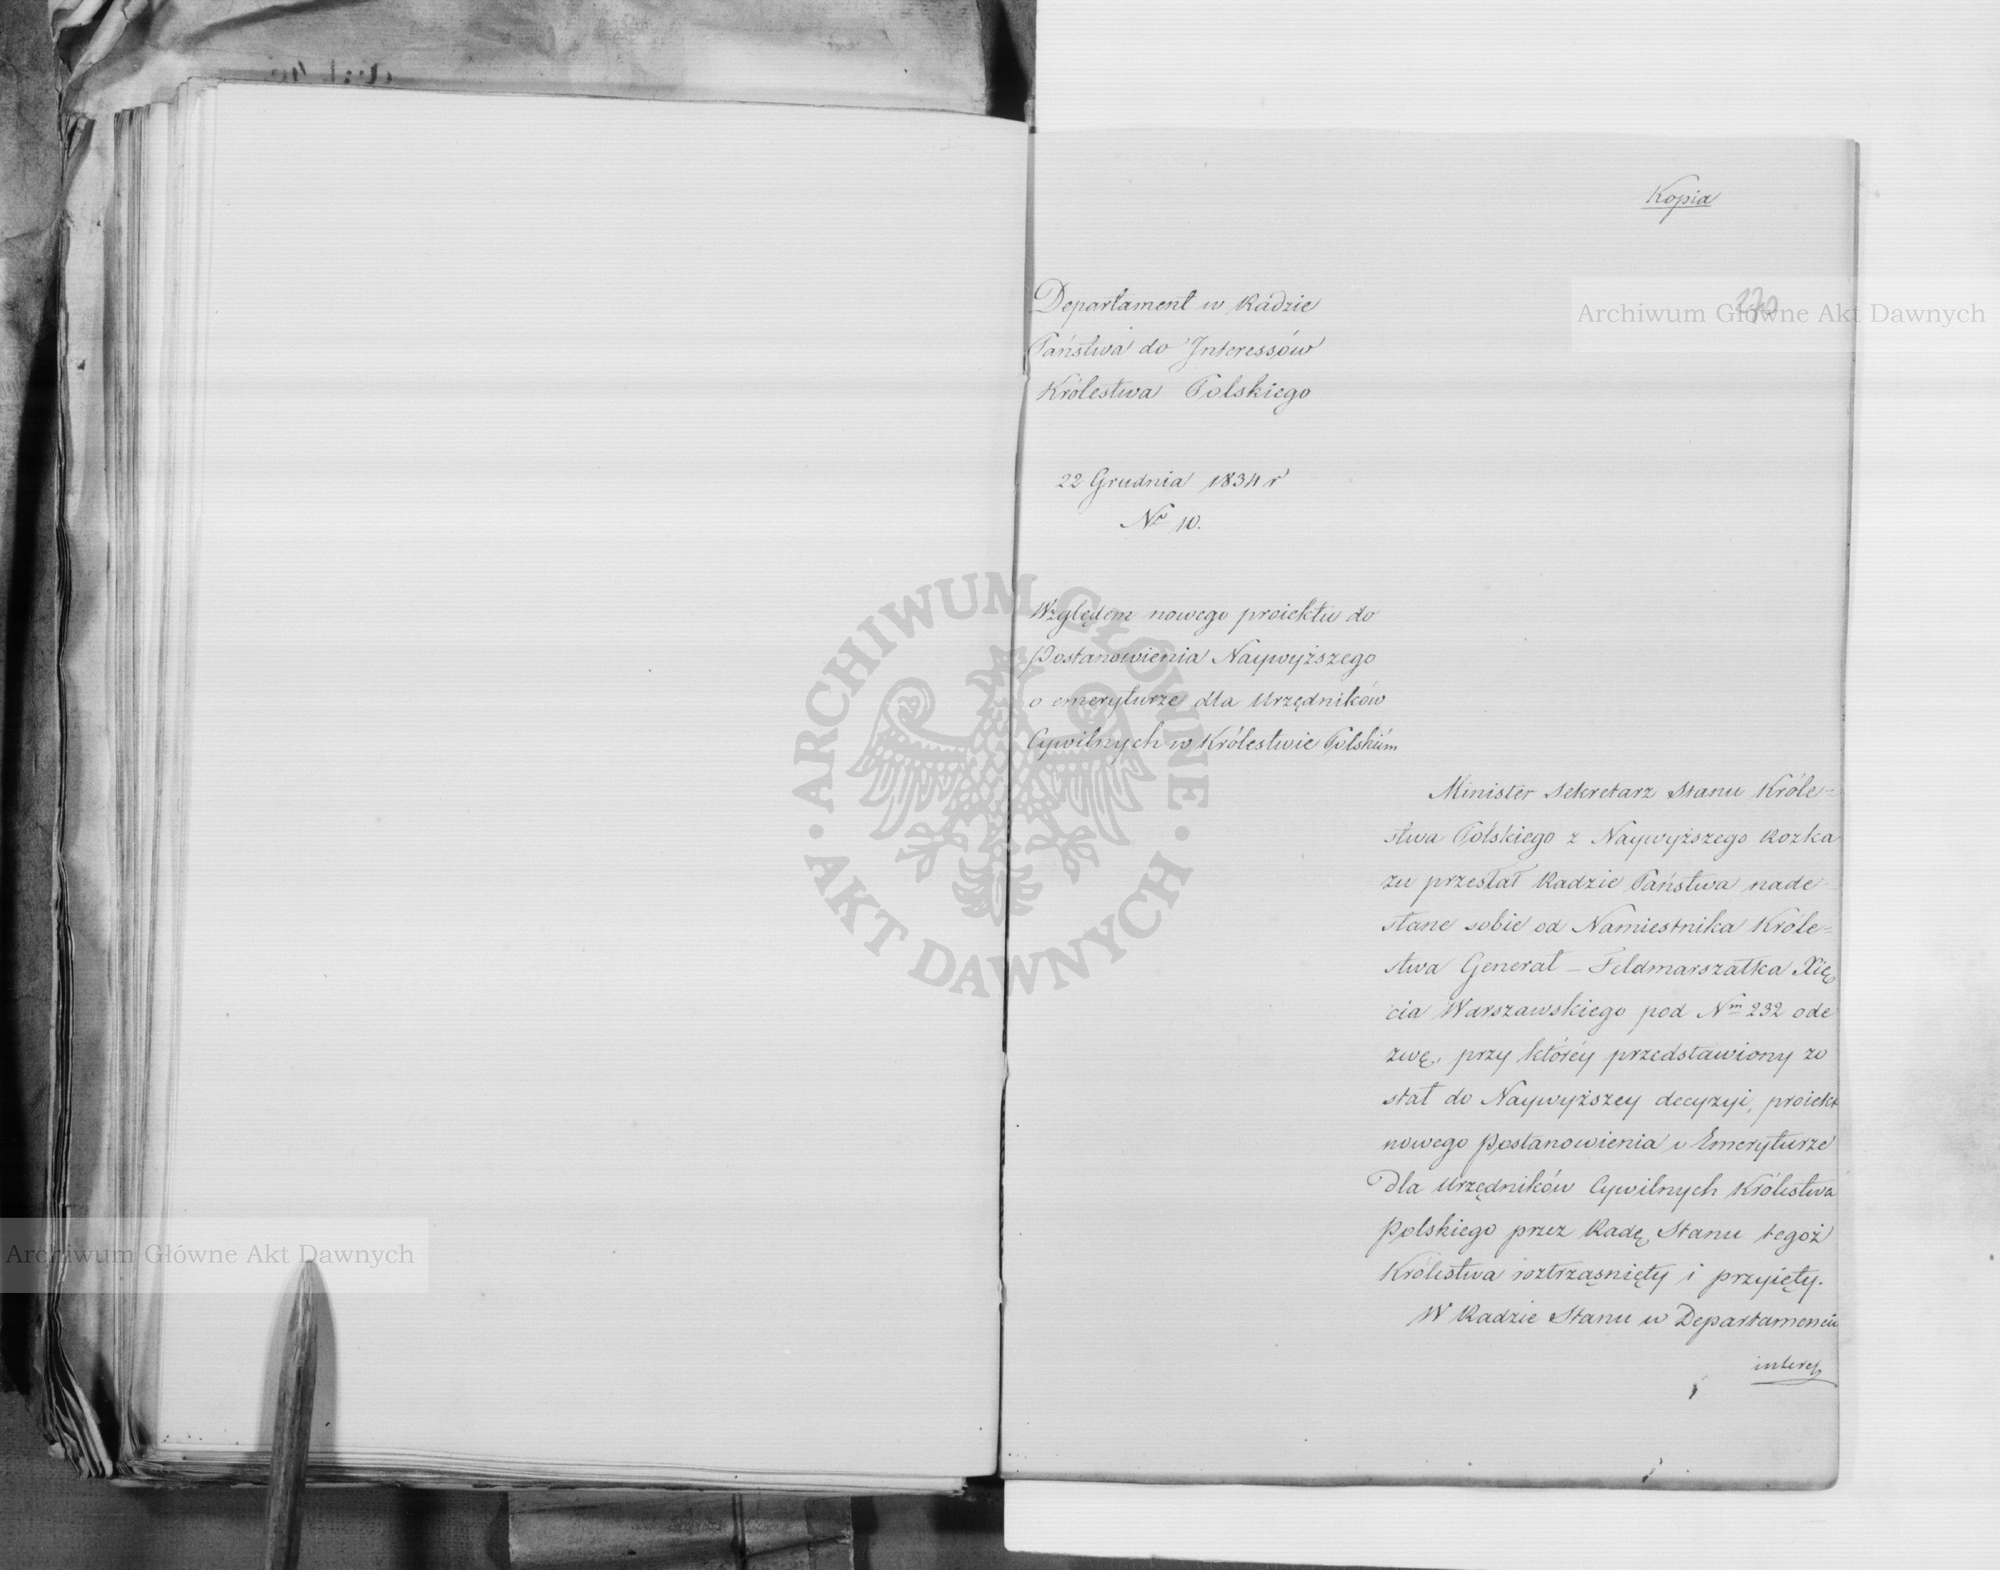 Kopia
270
Departament w Radzie
Państwa do Interessów
Królestwa Polskiego
22 Grudnia 1834 r
No 10.
Względem nowego proiektu do
Postanowienia Naywyższego
o emeryturze dla Urzędników
Cywilnych w Królestwie Polskiém
Minister Sekretarz Stanu Króle=
stwa Polskiego z Naywyższego Rozka
zu przesłał Radzie Państwa nade-
słane sobie od Namiestnika Króle=
stwa Generał - Feldmarszałka Xię
cia Warszawskiego pod Nm 232 ode
zwę, przy któréy przedstawiony zo
stał do Naywyższey decyzyi, proiekt
nowego Postanowienia o Emeryturze
Dla Urzędników Cywilnych Królestwa
Polskiego przez Radę Stanu tegoż
Królestwa roztrząśnięty i przyięty.
W Radzie Stanu w Departamencie
interes
Archiwum Główne Akt Dawnych
Archiwum Główne Akt Dawnych
ARCHIWUM GŁÓWNE AKT DAWNYCH